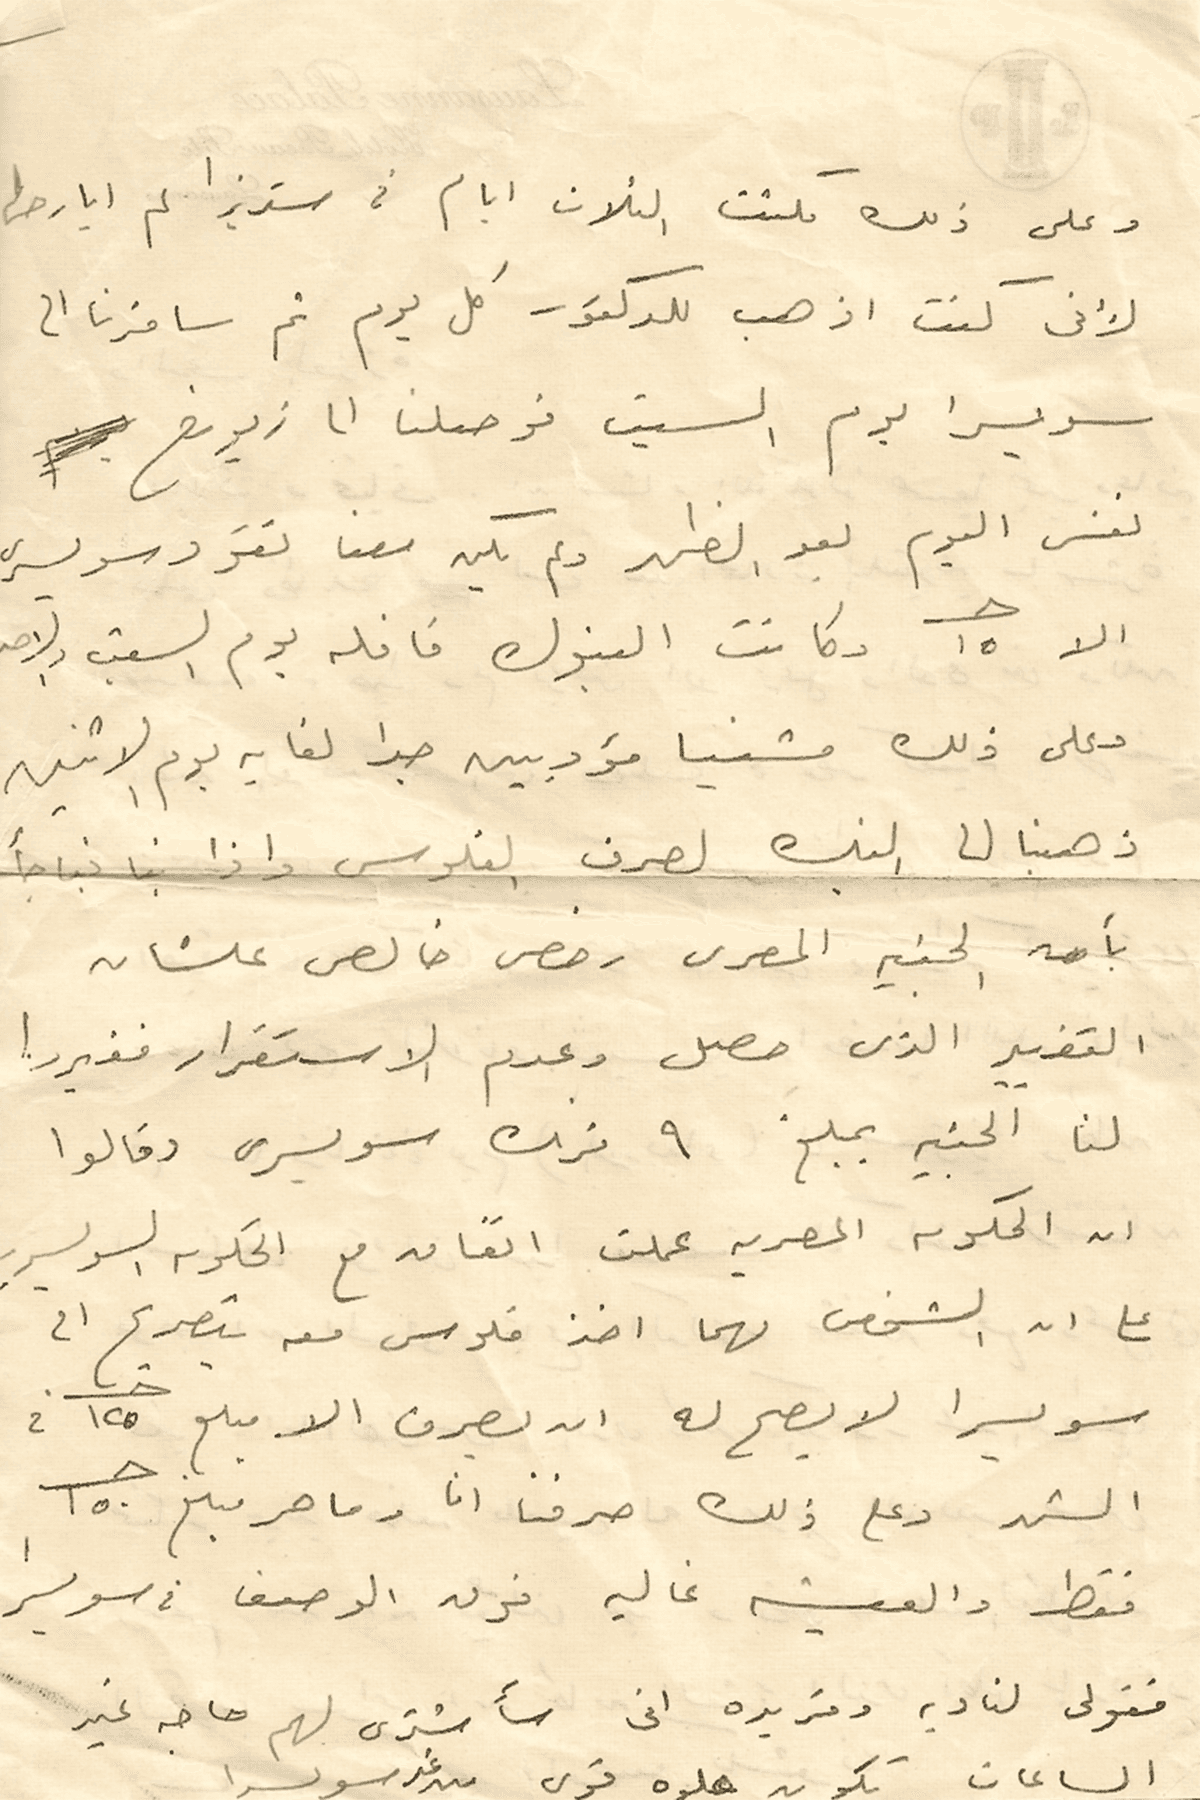 Lausanne Palace
وعلى ذلك مكثت الثلاث ايام فى ستريزا لم ابارحها
لأنى كنت اذهب للدكتور كل يوم ثم سافرنا الى
سويسرا يوم السبت فوصلنا الى زيورخ
نفس اليوم بعد الظهر ولم يكن معنا نقود سويسرى
الا ١٥ جـ وكانت البنوك قافله يوم السبت والاحد
وعلى ذلك مشينا مؤدبين جدا لغاية يوم الاثنين
ذهبنا الى البنك لصرف الفلوس واذا بنا نفاجأ
بأن الجنيه المصرى رخص خالص علشان
التغيير الذى حصل وعدم الاستقرار فغيروا
لنا الجنيه بمبلغ ٩ فرنك سويسرى وقالوا
ان الحكومه المصريه عملت اتفاق مع الحكومه السويسريه
على ان الشخص مهما اخذ فلوس معه بتصريح الى
سويسرا لا يصح له ان يصرف الا مبلغ ١٢٥ جـ فى
الشهر وعلى ذلك صرفنا انا وماهر مبلغ ١٥٠ جـ
فقط والمعيشه غاليه فوق الوصف فى سويسرا
فقولى لناديه وفريده انى سأشترى لهم حاجه غير
الساعات تكون حلوه قوى من غير سويسرا